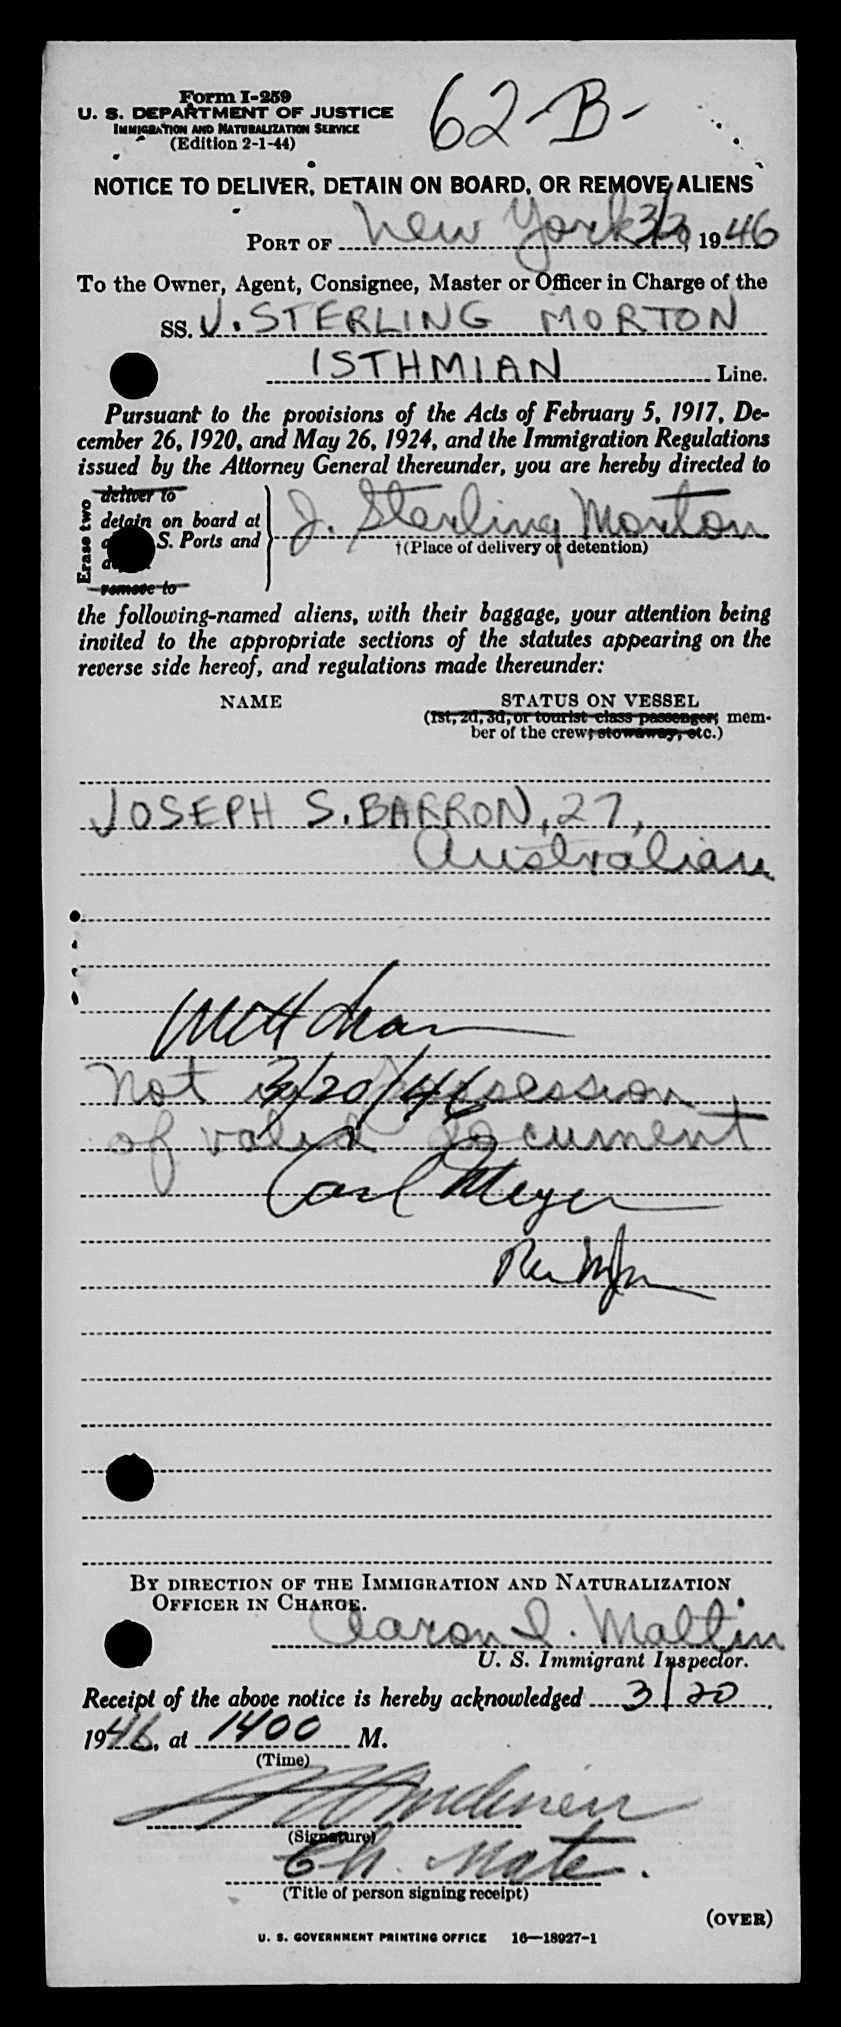 Form I-259
U. S. DEPARTMENT OF JUSTICE
IMMIGRATION AND NATURALIZATION SERVICE
(Edition 2-1-44)
62-B-
NOTICE TO DELIVER, DETAIN ON BOARD, OR REMOVE ALIENS
PORT OF New York 3/20, 1946
To the Owner, Agent, Consignee, Master or Officer in Charge of the
SS. J. STERLING MORTON
ISTHMIAN Line.
Pursuant to the provisions of the Acts of February 5, 1917, De-
cember 26, 1920, and May 26, 1924, and the Immigration Regulations
issued by the Attorney General thereunder, you are hereby directed to
Erase two
deliver to
detain on board at
S. Ports and
remove to
J. Sterling Morton
†(Place of delivery or detention)
the following-named aliens, with their baggage, your attention being
invited to the appropriate sections of the statutes appearing on the
reverse side hereof, and regulations made thereunder:
NAME STATUS ON VESSEL
(1st, 2d, 3d, or tourist class passenger; mem-
ber of the crew; stowaway, etc.)
JOSEPH S. BARRON, 27,
Australian
Not in possession
3/20/46
of valid document
Carl Meyer
BY DIRECTION OF THE IMMIGRATION AND NATURALIZATION
OFFICER IN CHARGE.
Aaron I. Maltin
U. S. Immigrant Inspector.
Receipt of the above notice is hereby acknowledged 3/20,
1946, at 1400 M.
(Time)
(Signature)
Ch. Mate.
(Title of person signing receipt)
(OVER)
U. S. GOVERNMENT PRINTING OFFICE 16—18927-1